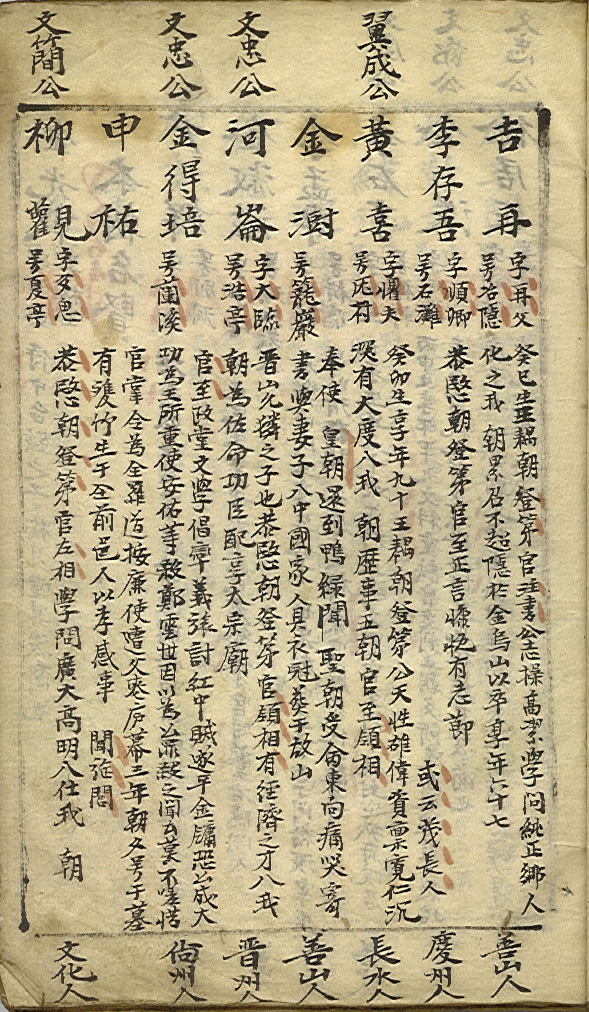 吉再
字再父
号冶隱
癸巳生王耦朝登第官注書公志操高潔學問純正鄉人
化之我 朝累召不起隱於金烏山以卒享年六十七
善山人
李存吾
字順卿
号石灘
恭愍朝登第官至正言慷慨有志節 或云茂長人
慶州人
翼成公
黃喜
字懼夫
号厖村
癸卯生享年九十王耦朝登第公天性雄偉資禀寬仁沉
深有大度入我 朝歷事五朝官至領相
長水人
金澍
号籠巖
奉使 皇朝還到鴨綠聞 聖朝受命東向痛哭寄
書與妻子入中國家人具衣冠葬于故山
善山人
文忠公
河崙
字大臨
号浩亭
晋山允潾之子也恭愍朝登第官領相有經濟之才入我
朝為佐命功臣配享太宗廟
晋州人
文忠公
金得培
号蘭溪
官至政堂文學倡率義旅討紅巾賊遂平金鏞恐公成大
功為王所重使安佑等殺鄭雲世因以為並殺之聞者莫不嗟惜
尙州人
申祐
官掌令為全羅道按廉使遭父喪庐幕三年朝夕号于墓
有雙竹生于前邑人以孝感事 聞旌閭
文簡公
柳觀
号夏亭
恭愍朝登第官左相學問廣大高明入仕我 朝
文化人